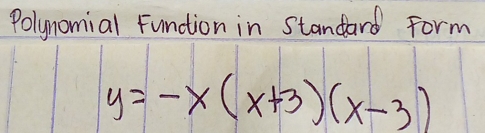 Polynomial Function in Standard Form
y = -x (x+3)(x-3)